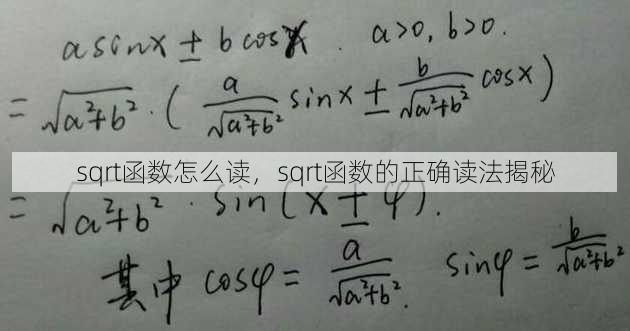 a sinx ± b cosx . a>0, b>0.
= √(a²+b²) · ( a/√(a²+b²) sinx ± b/√(a²+b²) cosx )
sqrt函数怎么读，sqrt函数的正确读法揭秘
= √(a²+b²) · sin(x ± φ).
其中 cosφ = a/√(a²+b²). sinφ = b/√(a²+b²)